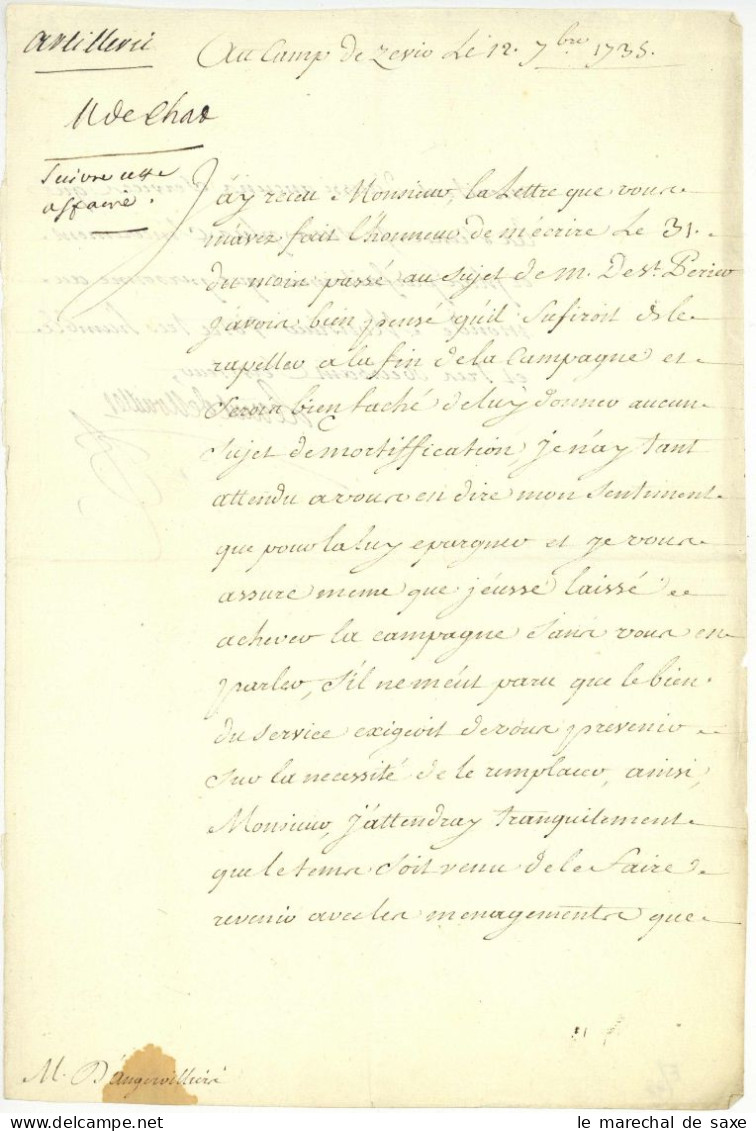 Artillerie
Au Camp de Zevio Le 12. 7.bre 1735.
M de Chas
Suivre cette
affaire.
J'ay receu Monsieur, la Lettre que vous
mavez fait l'honneur de m'écrire Le 31.
du mois passé au sujet de m. De St. Perier
j'avois bien pensé qu'il sufiroit de le
rapeller a la fin de la Campagne et
serois bien faché de luy donner aucun
sujet de mortiffication, Je n'ay tant
attendu a vous en dire mon sentiment
que pour la luy epargner et je vous
assure meme que j'eusse laissé
achever la campagne sans vous en
parler, s'il ne m'eut paru que le bien
du service exigeoit de vous prevenir
sur la necessité de le remplacer, ainsi,
Monsieur, j'attendray tranquilement
que le tems soit venu de le faire
revenir avec les menagements que
M. D'angervilliers
le marechal de saxe